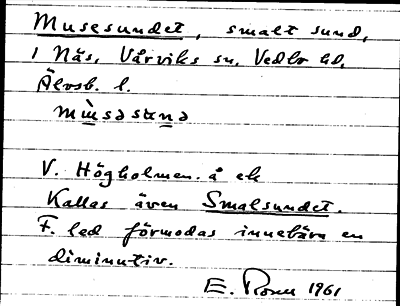 Musesundet, smalt sund,
i Näs, Vårviks sn, Vedbo hd,
Älvsb. l.
V. Högholmen. å ek
Kallas även Smalsundet.
F. led förmodas innebära en
diminutiv.
E. 1961